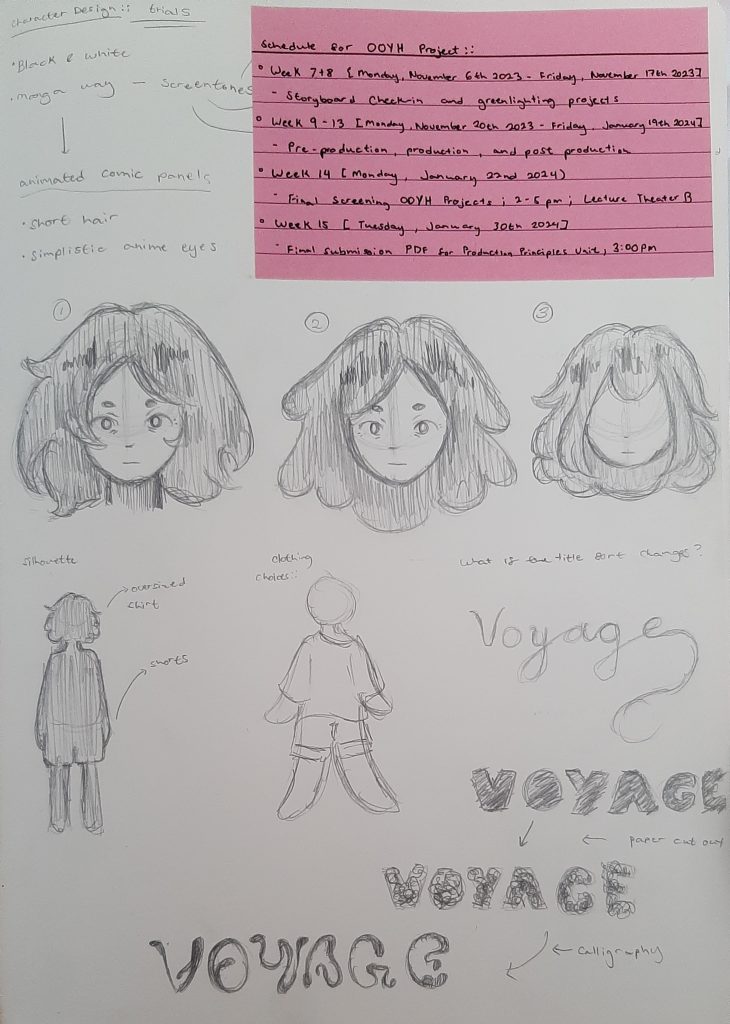 Character Design:: trials
•Black & white
•manga way — Screentones
animated comic panels
•short hair
•simplistic anime eyes
Schedule for OOYH Project::
° Week 7+8 [Monday, November 6th 2023 - Friday, November 17th 2023]
- Storyboard Check-in and greenlighting projects
° Week 9 - 13 [Monday, November 20th 2023 - Friday, January 19th 2024]
- Pre-production, production, and post production
° Week 14 [Monday, January 22nd 2024)
- Final Screening OOYH Projects ; 2-5pm ; Lecture Theater B
° Week 15 [Tuesday, January 30th 2024]
- Final Submission PDF for Production Principles Unit, 3:00pm
1
2
3
silhouette
oversized shirt
shorts
clothing
choices::
What if the title sort changes?
Voyage
VOYAGE
paper cut out
VOYAGE
Calligraphy
VOYAGE